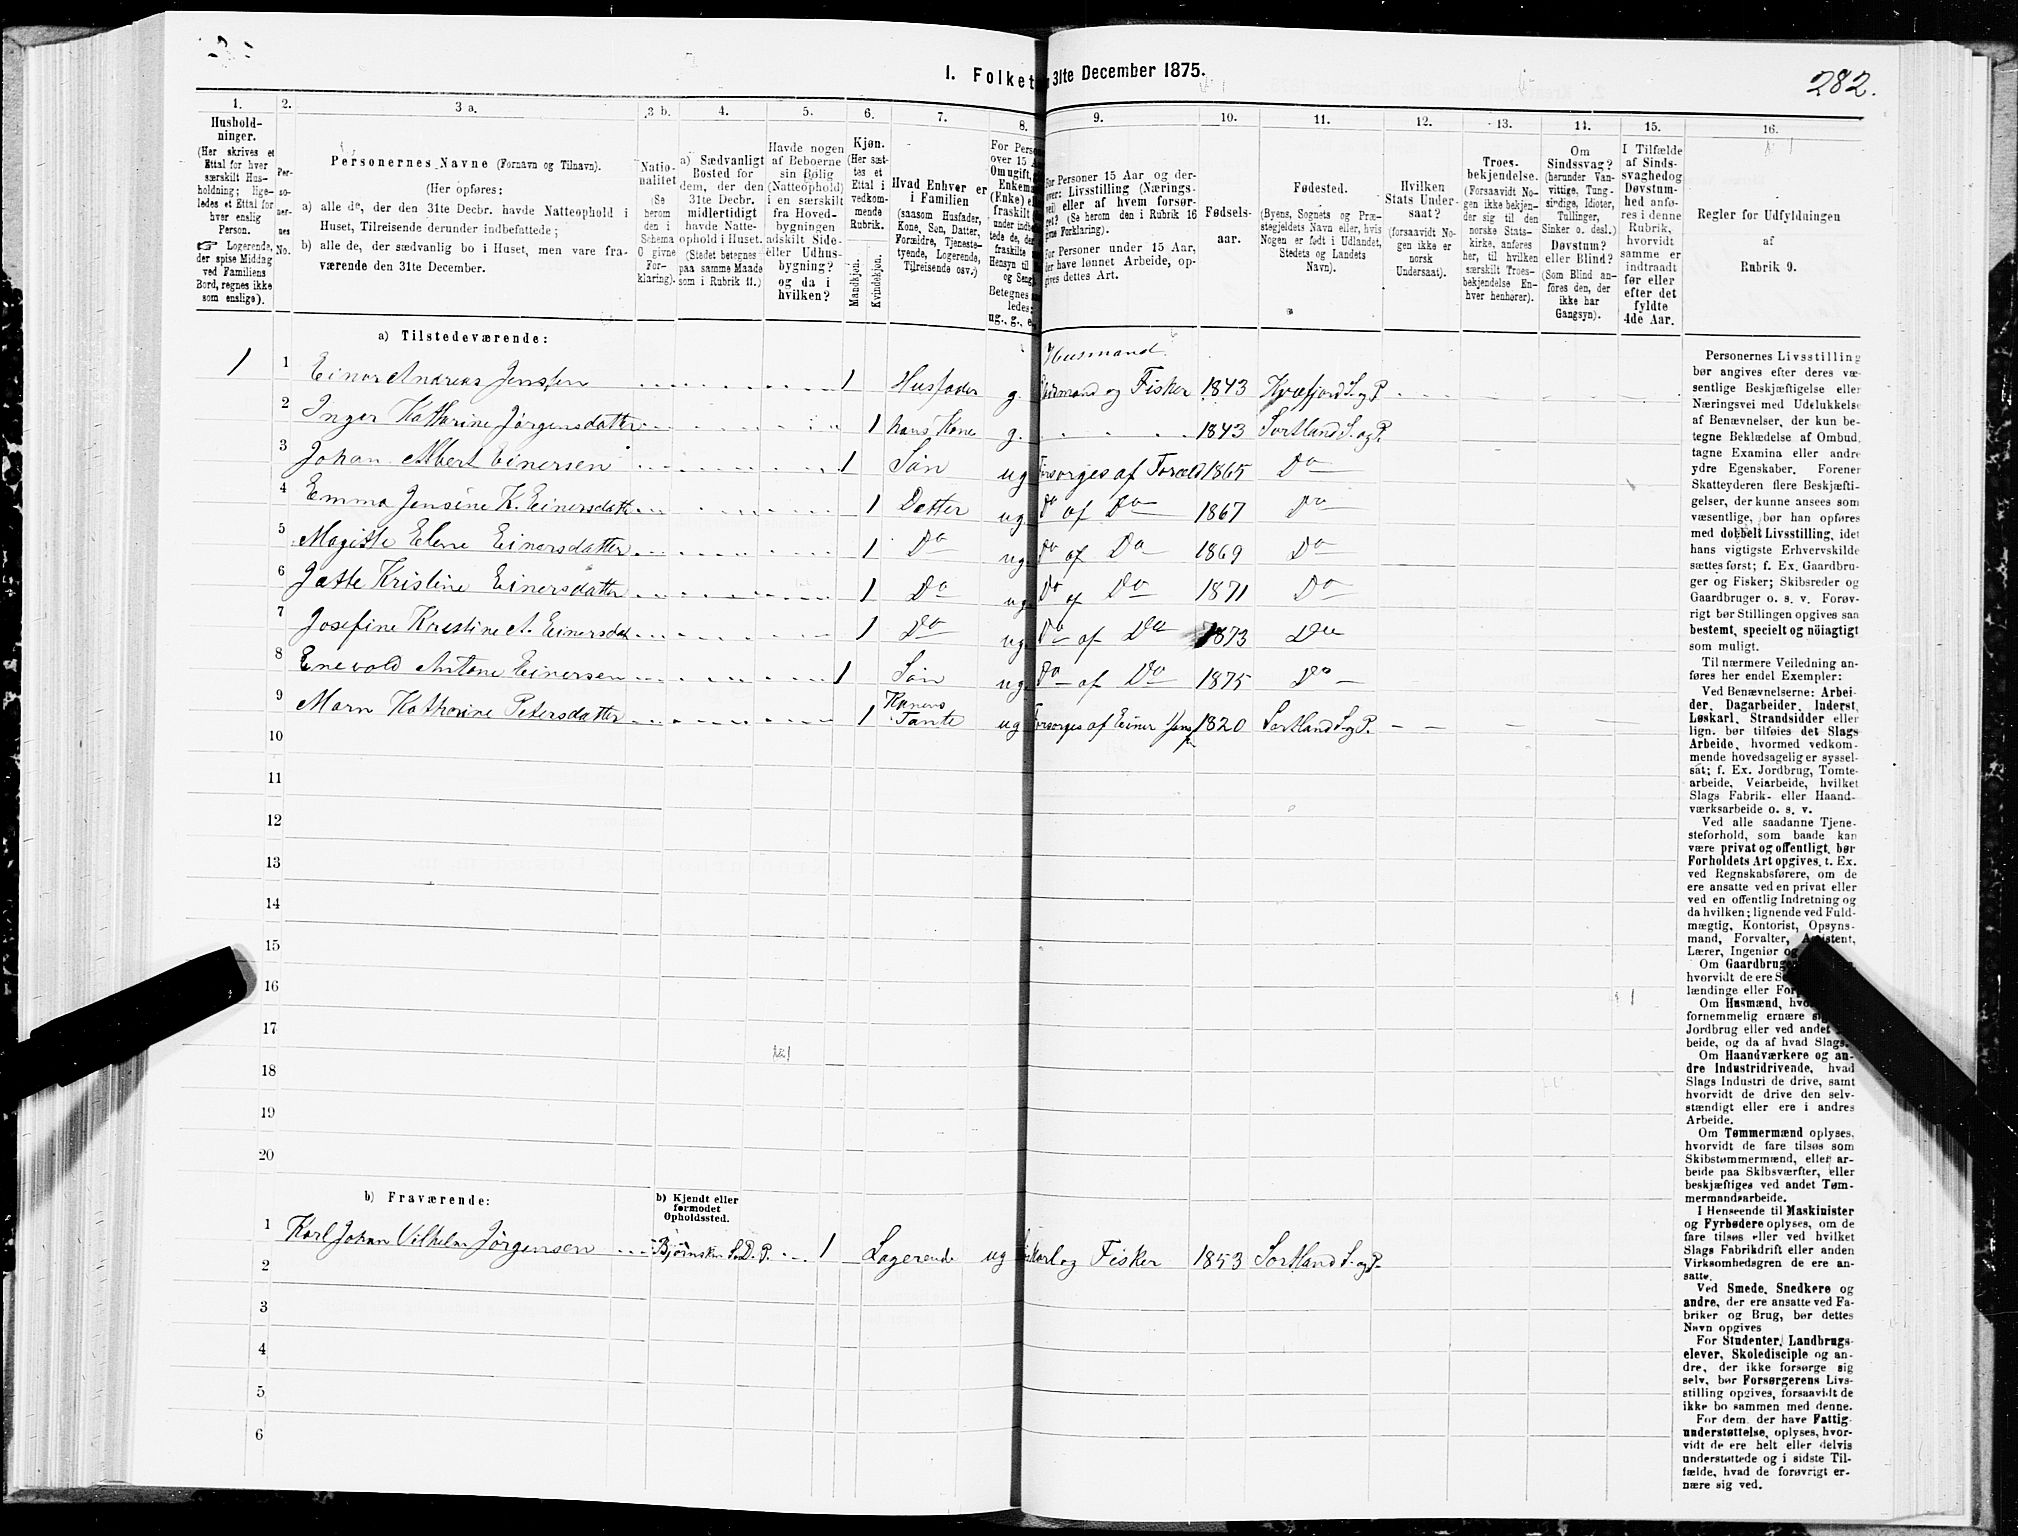 I. Folket 31te December 1875.
282.
1. 2. 3 a. 3 b. 4. 5. 6. 7. 8. 9. 10. 11. 12. 13. 14. 15. 16.
Hushold-
ninger.
(Her skrives et
Ettal for hver
særskilt Hus-
holdning; lige-
ledes et Ettal for
hver enslig
Person.
☞ Logerende,
der spise Middag
ved Familiens
Bord, regnes ikke
som enslige).
Per-
so-
ner-
nes
No.
Personernes Navne (Fornavn og Tilnavn).
(Her opføres:
a) alle de, der den 31te Decbr. havde Natteophold i
Huset, Tilreisende derunder indbefattede;
b) alle de, der sædvanlig bo i Huset, men vare fra-
værende den 31te December.
Natio-
nalitet
(Se
herom
den i
Schema
O givne
For-
klaring).
a) Sædvanligt
Bosted for
dem, der den
31te Decbr.
midlertidigt
havde Natte-
ophold i Huset.
(Stedet betegnes
paa samme Maade
som i Rubrik 11.)
Havde nogen
af Beboerne
sin Bolig
(Natteophold)
i en særskilt
fra Hoved-
bygningen
adskilt Side-
eller Udhus-
bygning?
og da i
hvilken?
Kjøn.
(Her sæt-
tes et
Ettal i
vedkom-
mende
Rubrik.
Mandkjøn.
Kvindekjøn.
Hvad Enhver er
i Familien
(saasom Husfader,
Kone, Søn, Datter,
Forældre, Tjeneste-
tyende, Logerende,
Tilreisende osv.)
For Perso
over 15 A
Om ugift,
Enkema
(Enke) e
fraskilt
under indb
tede de, de
fraskilte
Hensyn til
og Seng
Betegnes
ledes:
ug., g., e.
For Personer 15 Aar og der-
over: Livsstilling (Nærings-
vei) eller af hvem forsør-
get? (Se herom den i Rubrik 16
givne Forklaring).
For Personer under 15 Aar,
der have lønnet Arbeide, op-
gives dettes Art.
Fødsels-
aar.
Fødested.
(Byens, Sognets og Præ-
stegjeldets Navn eller, hvis
Nogen er født i Udlandet,
Stedets og Landets
Navn).
Hvilken
Stats Under-
saat?
(forsaavidt No-
gen ikke er
norsk
Undersaat).
Troes-
bekjendelse.
(Forsaavidt No-
gen ikke bekjen-
der sig til den
norske Stats-
kirke, anføres
her, til hvilken
særskilt Troes-
bekjendelse En-
hver henhører).
Om
Sindssvag?
(herunder Van-
vittige, Tung-
sindige, Idioter,
Tullinger,
Sinker o. desl.)
Døvstum?
eller Blind?
(Som Blind an-
føres den, der
ikke har
Gangsyn).
I Tilfælde
af Sinds-
svaghed og
Døvstum-
hed anfø-
res i denne
Rubrik,
hvorvidt
samme er
indtraadt
før eller
efter det
fyldte
4de Aar.
Regler for Udfyldningen
af
Rubrik 9.
a) Tilstedeværende:
Husmand
1 1 Einar Andreas Jensen 1 Husfader g. og Fisker 1843 Kvæfjord S. og P.
2 Inger Katharine Jørgensdatter 1 hans Kone g. 1843 Sortland S. og P.
3 Johan Albert Einersen 1 Søn ug Forsorges af Foræld 1865 Do
4 Emma Jensine K. Einersdatt 1 Datter ug. Do af Do 1867 Do
5 Magitte Elene Einersdatter 1 Do ug. Do af Do 1869 Do
6 Jette Kristine Einersdatter 1 Do ug. Do af Do 1871 Do
7 Josefine Kristine A. Einersdat 1 Do ug. Do af Do 1873 Do
8 Enevold Antone Einersen 1 Søn ug. Do af Do 1875 Do
9 Marn Katharine Petersdatter 1 Konens Tante ug Forsorges af Einer Jens 1820 Sortland S. og P.
10
11
12
13
14
15
16
17
18
19
20
b) Fraværende:
b) Kjendt eller
formodet
Opholdssted.
1 Karl Johan Vilhelm Jørgensen Bjørnskin S. D. P. 1 Logerende ug og Fisker 1853 Sortland S. og P.
2
3
4
5
6
Personernes Livsstilling
bør angives efter deres væ-
sentlige Beskjæftigelse eller
Næringsvei med Udelukkelse
af Benævnelser, der kun be-
tegne Beklædelse af Ombud,
tagne Examina eller andre
ydre Egenskaber. Forener
Skatteyderen flere Beskjæfti-
gelser, der kunne ansees som
væsentlige, bør han opføres
med dobbelt Livsstilling, idet
hans vigtigste Erhvervskilde
sættes først; f. Ex. Gaardbru-
ger og Fisker; Skibsreder og
Gaardbruger o. s. v. Forøv-
rigt bør Stillingen opgives saa
bestemt, specielt og nöiagtigt
som muligt.
Til nærmere Veiledning an-
føres her endel Exempler:
Ved Benævnelserne: Arbei-
der, Dagarbeider, Inderst,
Løskarl, Strandsidder eller
lign. bør tilføies det Slags
Arbeide, hvormed vedkom-
mende hovedsagelig er syssel-
sat; f. Ex. Jordbrug, Tomte-
arbeide, Veiarbeide, hvilket
Slags Fabrik- eller Haand-
værksarbeide o. s. v.
Ved alle saadanne Tjene-
steforhold, som baade kan
være privat og offentligt, bør
Forholdets Art opgives, t. Ex.
ved Regnskabsførere, om de
ere ansatte ved en privat eller
ved en offentlig Indretning og
da hvilken; lignende ved Fuld-
mægtig, Kontorist, Opsyns-
mand, Forvalter, Assistent,
Lærer, Ingeniør og
Om Gaardbruge
hvorvidt de ere Se
lændinge eller For
Om Husmænd, hvo
fornemmelig ernære sig
Jordbrug eller ved andet
beide, og da af hvad Slags.
Om Haandværkere og an-
dre Industridrivende, hvad
Slags Industri de drive, samt
hvorvidt de drive den selv-
stændigt eller ere i andres
Arbeide.
Om Tømmermænd oplyses,
hvorvidt de fare tilsøs som
Skibstømmermænd, eller ar-
beide paa Skibsværfter, eller
beskjæftiges ved andet Tøm-
mermandsarbeide.
I Henseende til Maskinister
og Fyrbødere oplyses, om de
fare tilsøs eller ved hvilket
Slags Fabrikdrift eller anden
Virksomhedsgren de ere an-
satte.
Ved Smede, Snedkere og
andre, der ere ansatte ved Fa-
briker og Brug, bør dettes
Navn opgives
For Studenter, Landbrugs-
elever, Skoledisciple og an-
dre, der ikke forsørge sig
selv, bør Forsørgerens Livs-
stilling opgives, forsaavidt de
ikke bo sammen med denne.
For dem, der have Fattig-
understøttelse, oplyses, hvor-
vidt de ere helt eller delvis
understøttede og i sidste Til-
fælde, hvad de forøvrigt er-
nære sig ved.